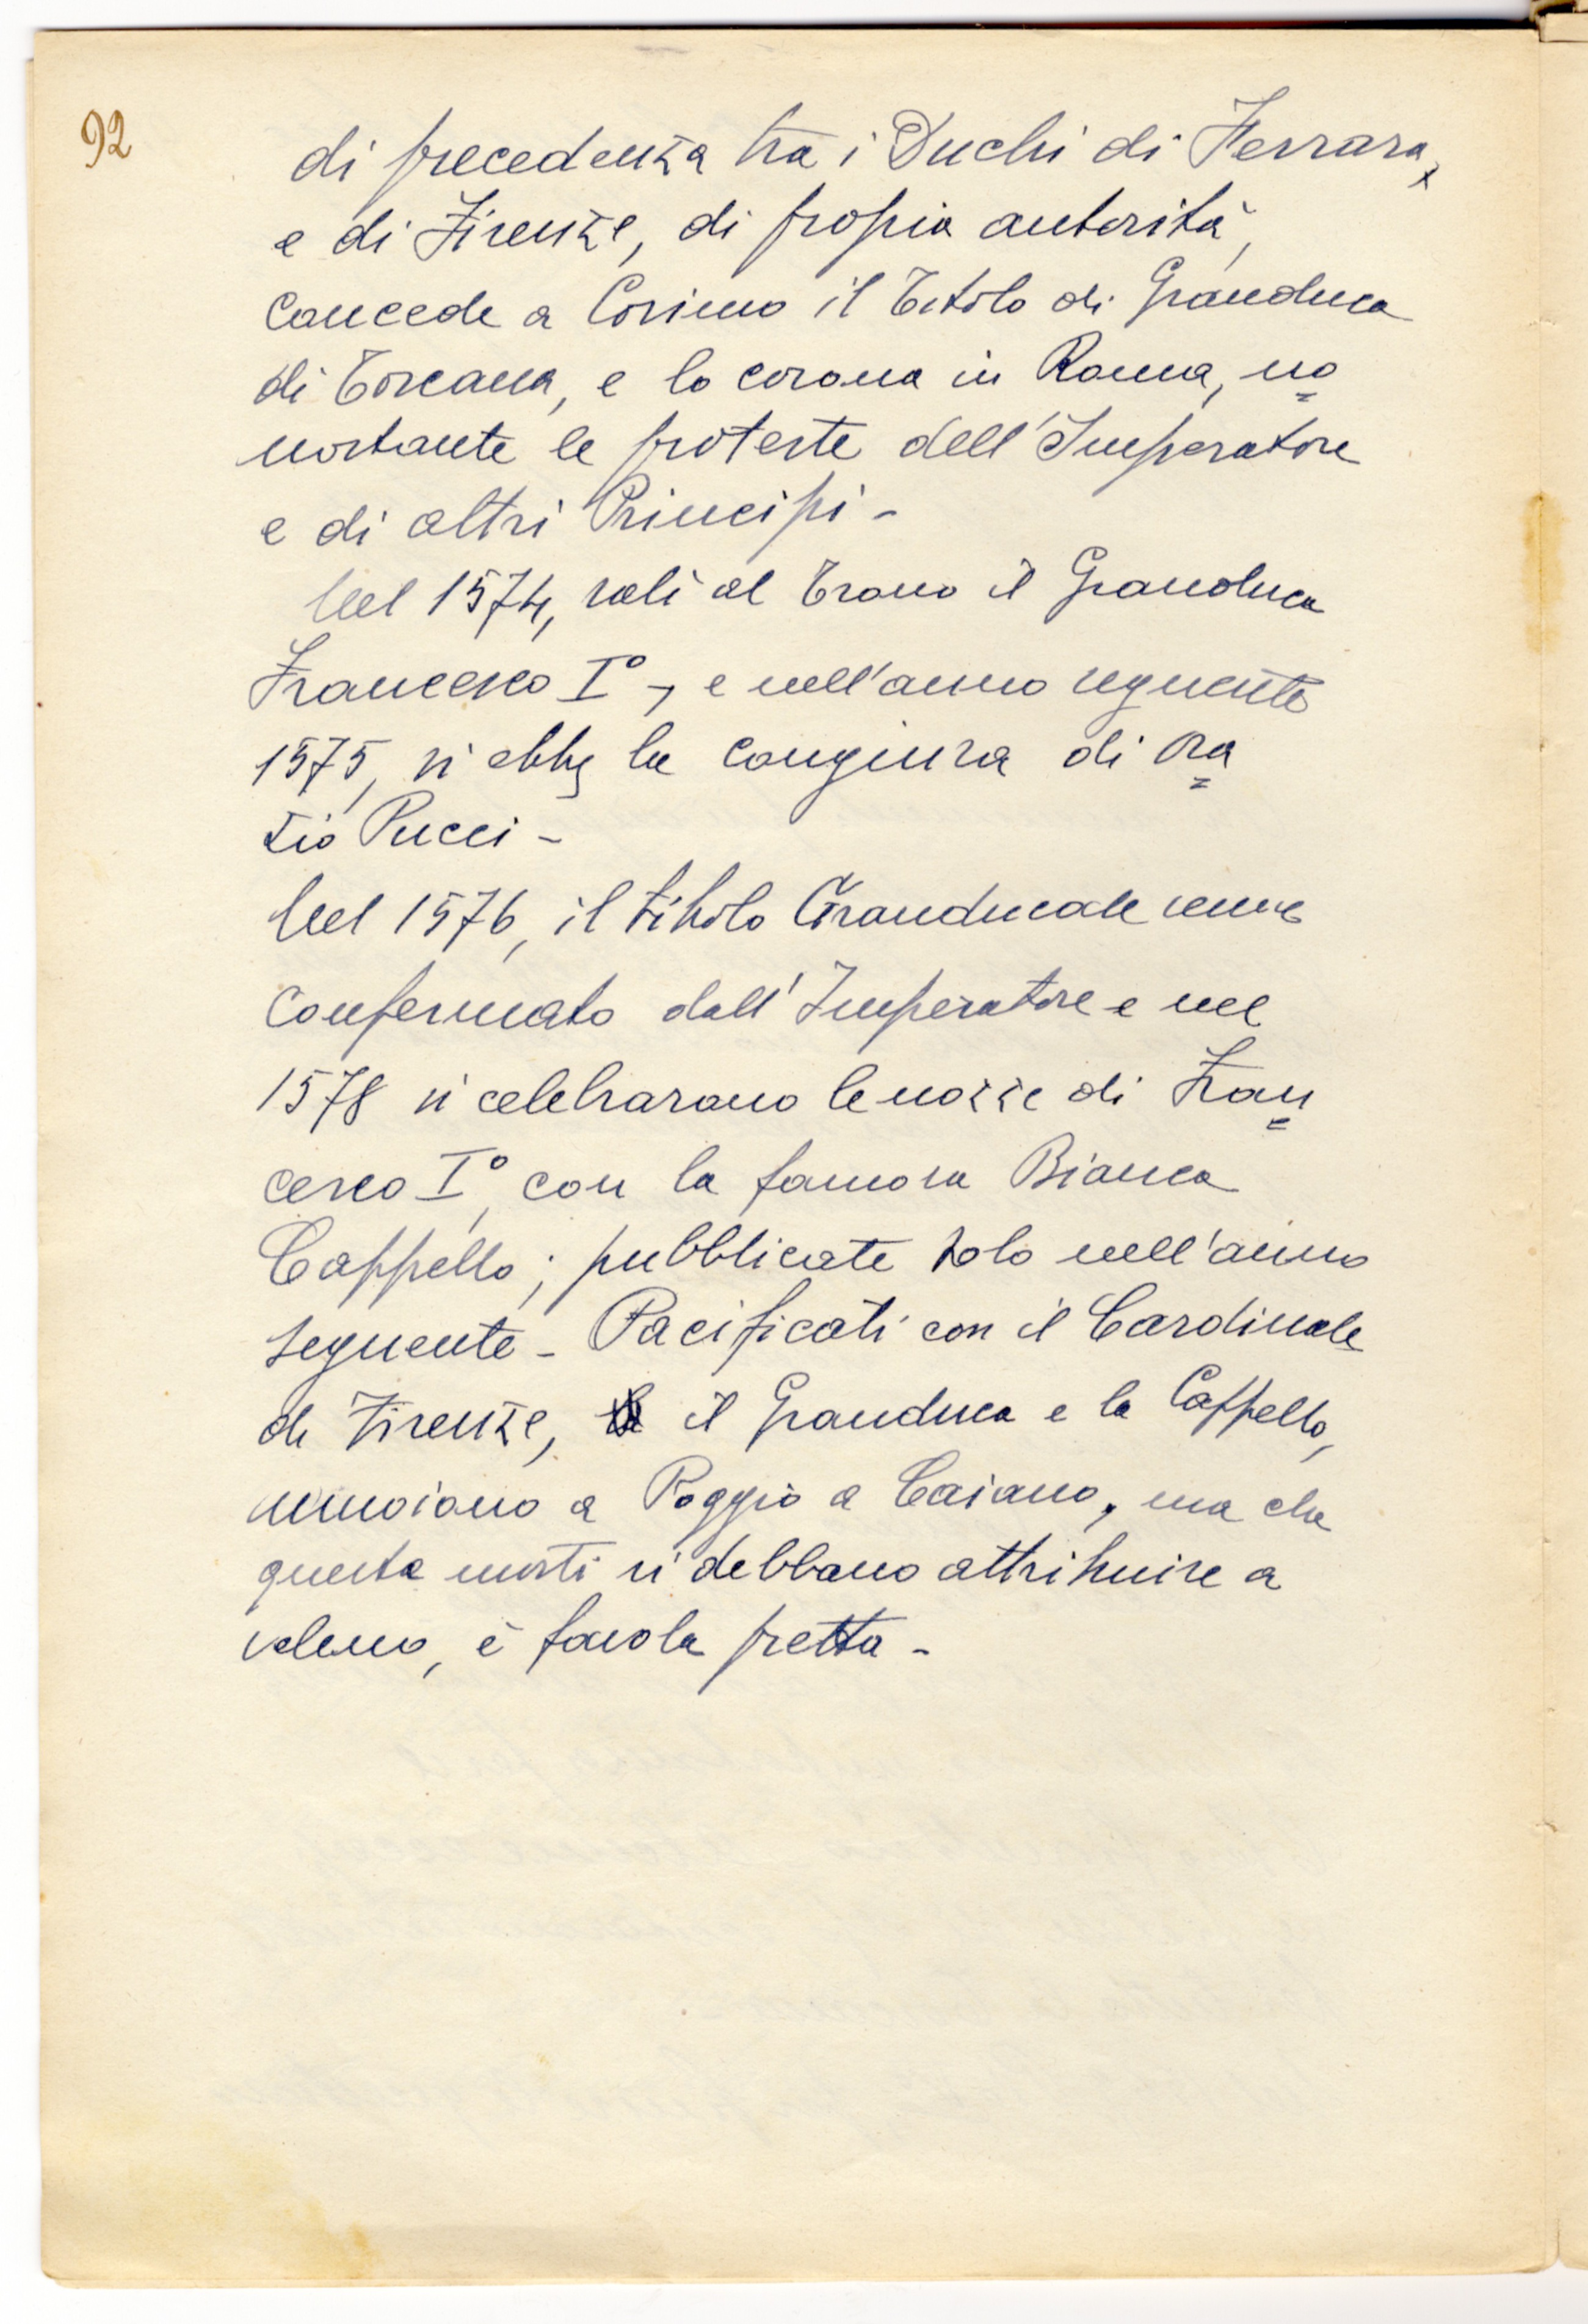 92
di precedenza tra i Duchi di Ferrara,
e di Firenze, di propia autorità,
concede a Cosimo il Titolo di Granduca
di Toscana, e lo corona in Roma, no=
nostante le proteste dell'Imperatore
e di altri Principi -
Nel 1574, salì al Trono il Granduca
Francesco I°, e nell'anno seguente
1575, si ebbe la congiura di Ora=
zio Pucci -
Nel 1576, il titolo Granducale venne
confermato dall'Imperatore e nel
1578 si celebrarono le nozze di Fran=
cesco I°, con la famosa Bianca
Cappello; pubblicate solo nell'anno
seguente - Pacificati con il Cardinale
di Firenze, il Granduca e la Cappello,
muoiono a Poggio a Caiano, ma che
queste morti si debbano attribuire a
veleno, è favola pretta -